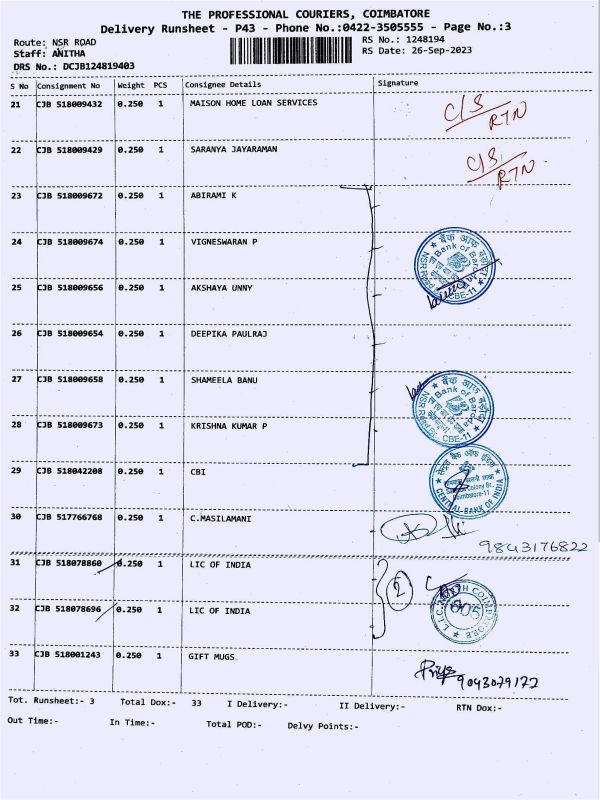 THE PROFESSIONAL COURIERS, COIMBATORE
Delivery Runsheet - P43 - Phone No.:0422-3505555 - Page No.:3
Route: NSR ROAD
RS No.: 1248194
Staff: ANITHA
RS Date: 26-Sep-2023
DRS No.: DCJB124819403
S No Consignment No Weight PCS Consignee Details Signature
21 CJB 518009432 0.250 1 MAISON HOME LOAN SERVICES C/S RTN
22 CJB 518009429 0.250 1 SARANYA JAYARAMAN C/S RTN
23 CJB 518009672 0.250 1 ABIRAMI K
24 CJB 518009674 0.250 1 VIGNESWARAN P
बैंक ऑफ़ बड़ौदा
Bank of Baroda
CBE-11
25 CJB 518009656 0.250 1 AKSHAYA UNNY
26 CJB 518009654 0.250 1 DEEPIKA PAULRAJ
27 CJB 518009658 0.250 1 SHAMEELA BANU
बैंक ऑफ़ बड़ौदा
Bank of Baroda
CBE-11
28 CJB 518009673 0.250 1 KRISHNA KUMAR P
29 CJB 518042208 0.250 1 CBI
CENTRAL BANK OF INDIA
Coimbatore-11
30 CJB 517766768 0.250 1 C.MASILAMANI
9843176822
31 CJB 518078860 0.250 1 LIC OF INDIA
2
32 CJB 518078696 0.250 1 LIC OF INDIA
33 CJB 518001243 0.250 1 GIFT MUGS
Priya 9043079172
Tot. Runsheet:- 3 Total Dox:- 33 I Delivery:- II Delivery:- RTN Dox:-
Out Time:- In Time:- Total POD:- Delvy Points:-